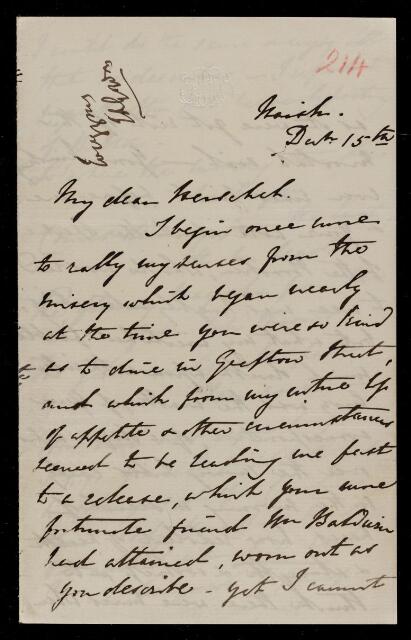 214
Naish.
Dec 15th
My dear Herschel.
I begin once more
to rally my senses from the
misery which began nearly
at the time you were so kind
as to dine in Grafton Street,
and which from my entire loss
of appetite & other circumstances
seemed to be leading me fast
to a release, which your more
fortunate friend Mr Baldwin
had attained, worn out as
you describe - yet I cannot